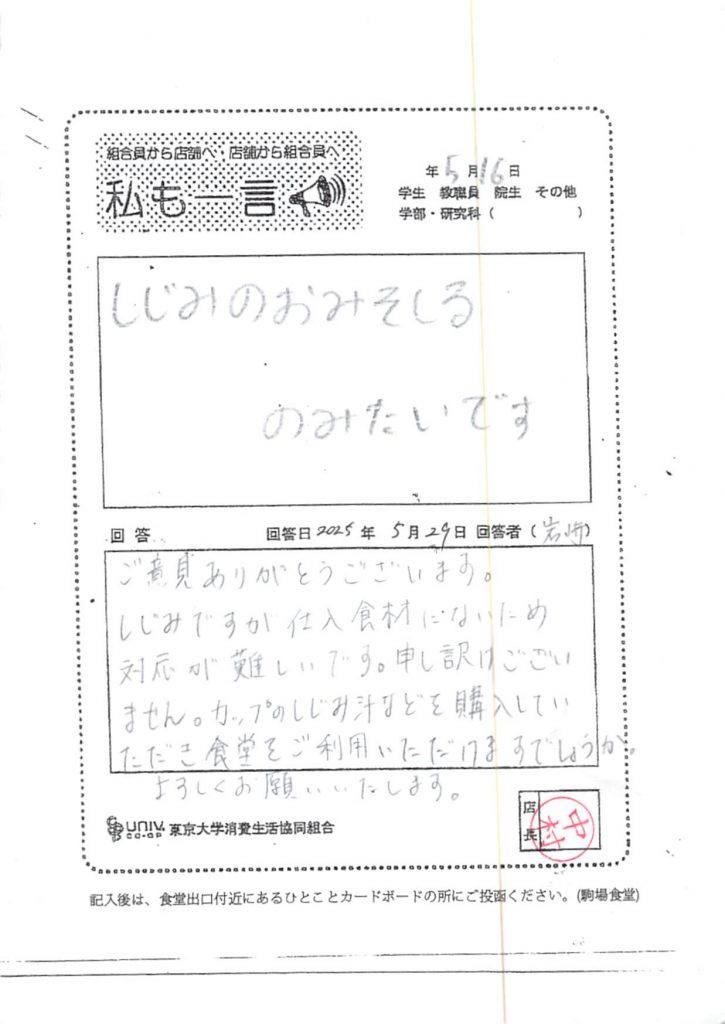 組合員から店舗へ・店舗から組合員へ
私も一言
年 5月16日
学生 教職員 院生 その他
学部・研究科（ ）
しじみのおみそしる
のみたいです
回答 回答日2025年 5月29日 回答者（岩崎）
ご意見ありがとうございます。
しじみですが仕入食材にないため
対応が難しいです。申し訳けござい
ません。カップのしじみ汁などを購入してい
ただき食堂をご利用いただけますでしょうか。
よろしくお願いいたします。
UNIV. CO-OP 東京大学消費生活協同組合
店長 中村
記入後は、食堂出口付近にあるひとことカードボードの所にご投函ください。(駒場食堂)